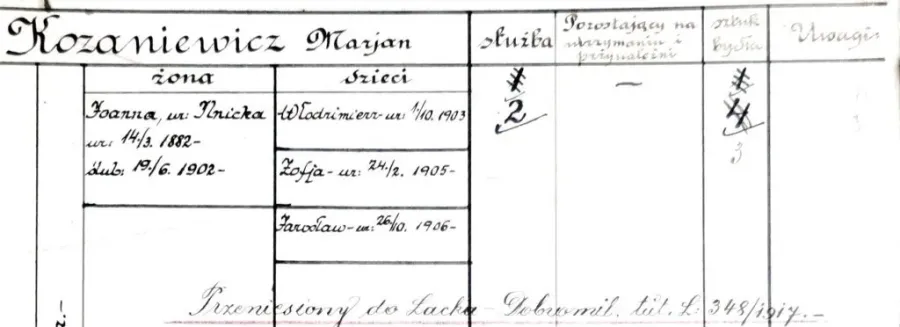 Kozaniewicz Marjan
służba
Pozostający na
utrzymaniu i
przynależni
sztuk
bydła
Uwagi
żona
dzieci
Joanna, ur: Ilnicka
ur: 14/3. 1882-
ślub: 19/6. 1902-
Włodzimierz-ur: 1/10. 1903
Zofja-ur: 24/2. 1905-
Jarosław-ur: 26/10. 1906-
2
—
4
3
Przeniesiony do Lacka-Dobromil. tut. L: 348/1917.-